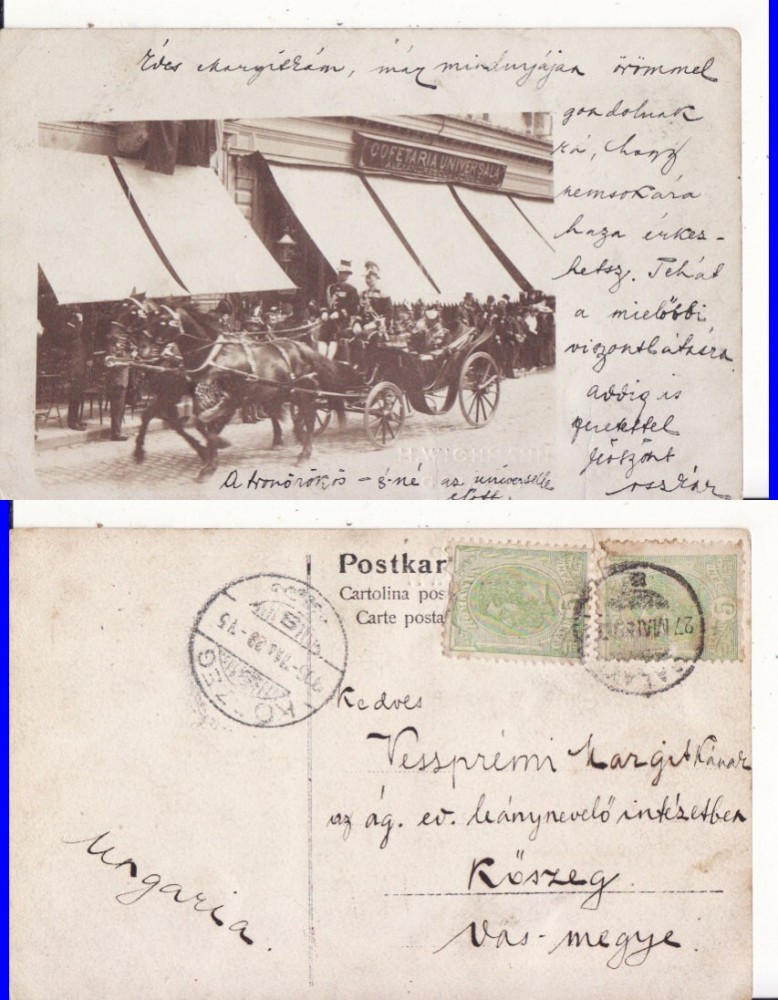 Édes Margitkám, már mindnyájan örömmel
gondolunk
rá, hogy
nemsokára
haza érkez-
hetsz. Tehát
a mielőbbi
viszontlátásra
addig is
szeretettel
Oszkár
COFETARIA UNIVERSALA
H. WICHMANN
A tronörökös - é-né az universelle
előtt.
Postkar
Cartolina pos
Carte posta
5
5
27 MAI
GALA
KŐSZEG
Kedves
Vesspremi Margitkának
az ág. ev. leánynevelő intézetben
Kőszeg.
Vas-megye.
Ungaria.